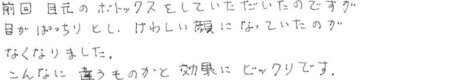 前回 目元のボトックスをしていただいたのですが
目がぱっちりとし、けわしい顔になっていたのが
なくなりました。
こんなに違うものかと効果にビックリです。